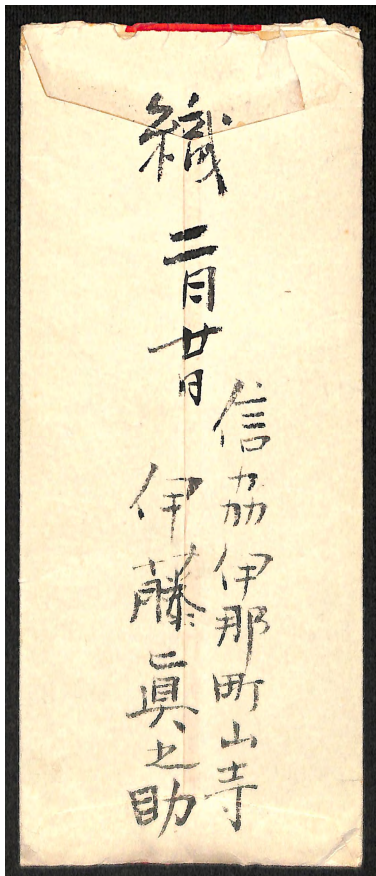 織
二月廿日
信州伊那町山寺
伊藤眞之助